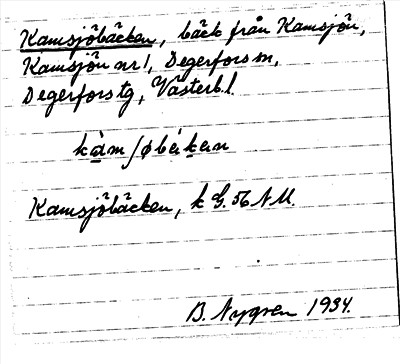 Kamsjöbäcken, bäck från Kamsjön,
Kamsjön nr 1, Degerfors sn,
Degerfors tg, Västerb l.
kam ʃøbäkan
Kamsjöbäcken, k G. 56 N.U.
B. Nygren 1934.